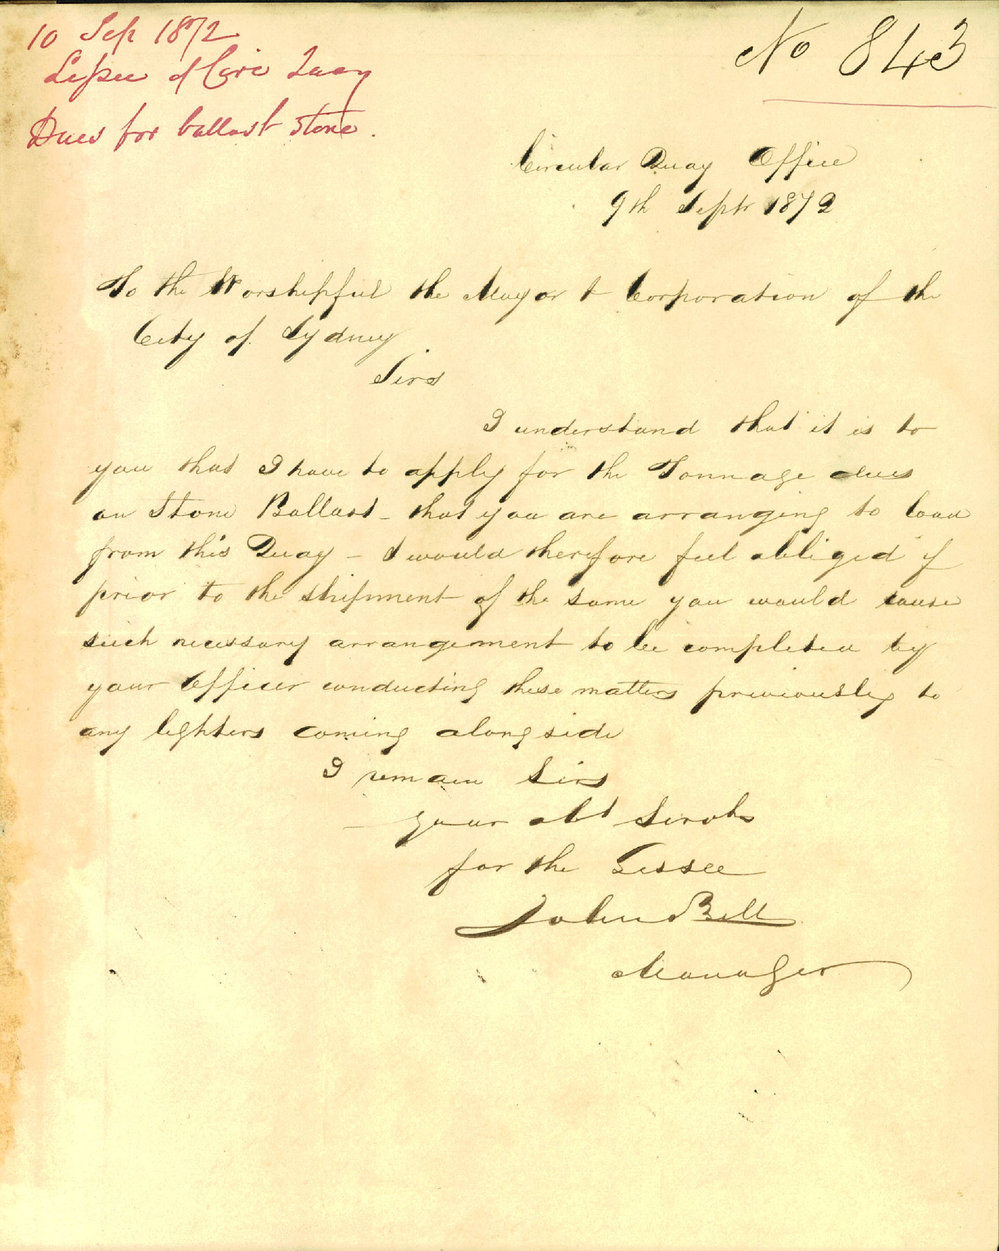 10 Sep 1872
Lessee of Circ Quay
Dues for ballast stone.
No 843
Circular Quay Office
9th Septr 1872
To the Worshipful the Mayor & Corporation of the
City of Sydney
Sirs
I understand that it is to
you that I have to apply for the Tonnage dues
on Stone Ballast - that you are arranging to load
from this Quay - I would therefore feel obliged if
prior to the shipment of the same you would cause
such necessary arrangement to be completed by
your Officer conducting these matters previously to
any lighters coming alongside
I remain Sirs
your obt Servt
for the Lessee
John Bell
Manager